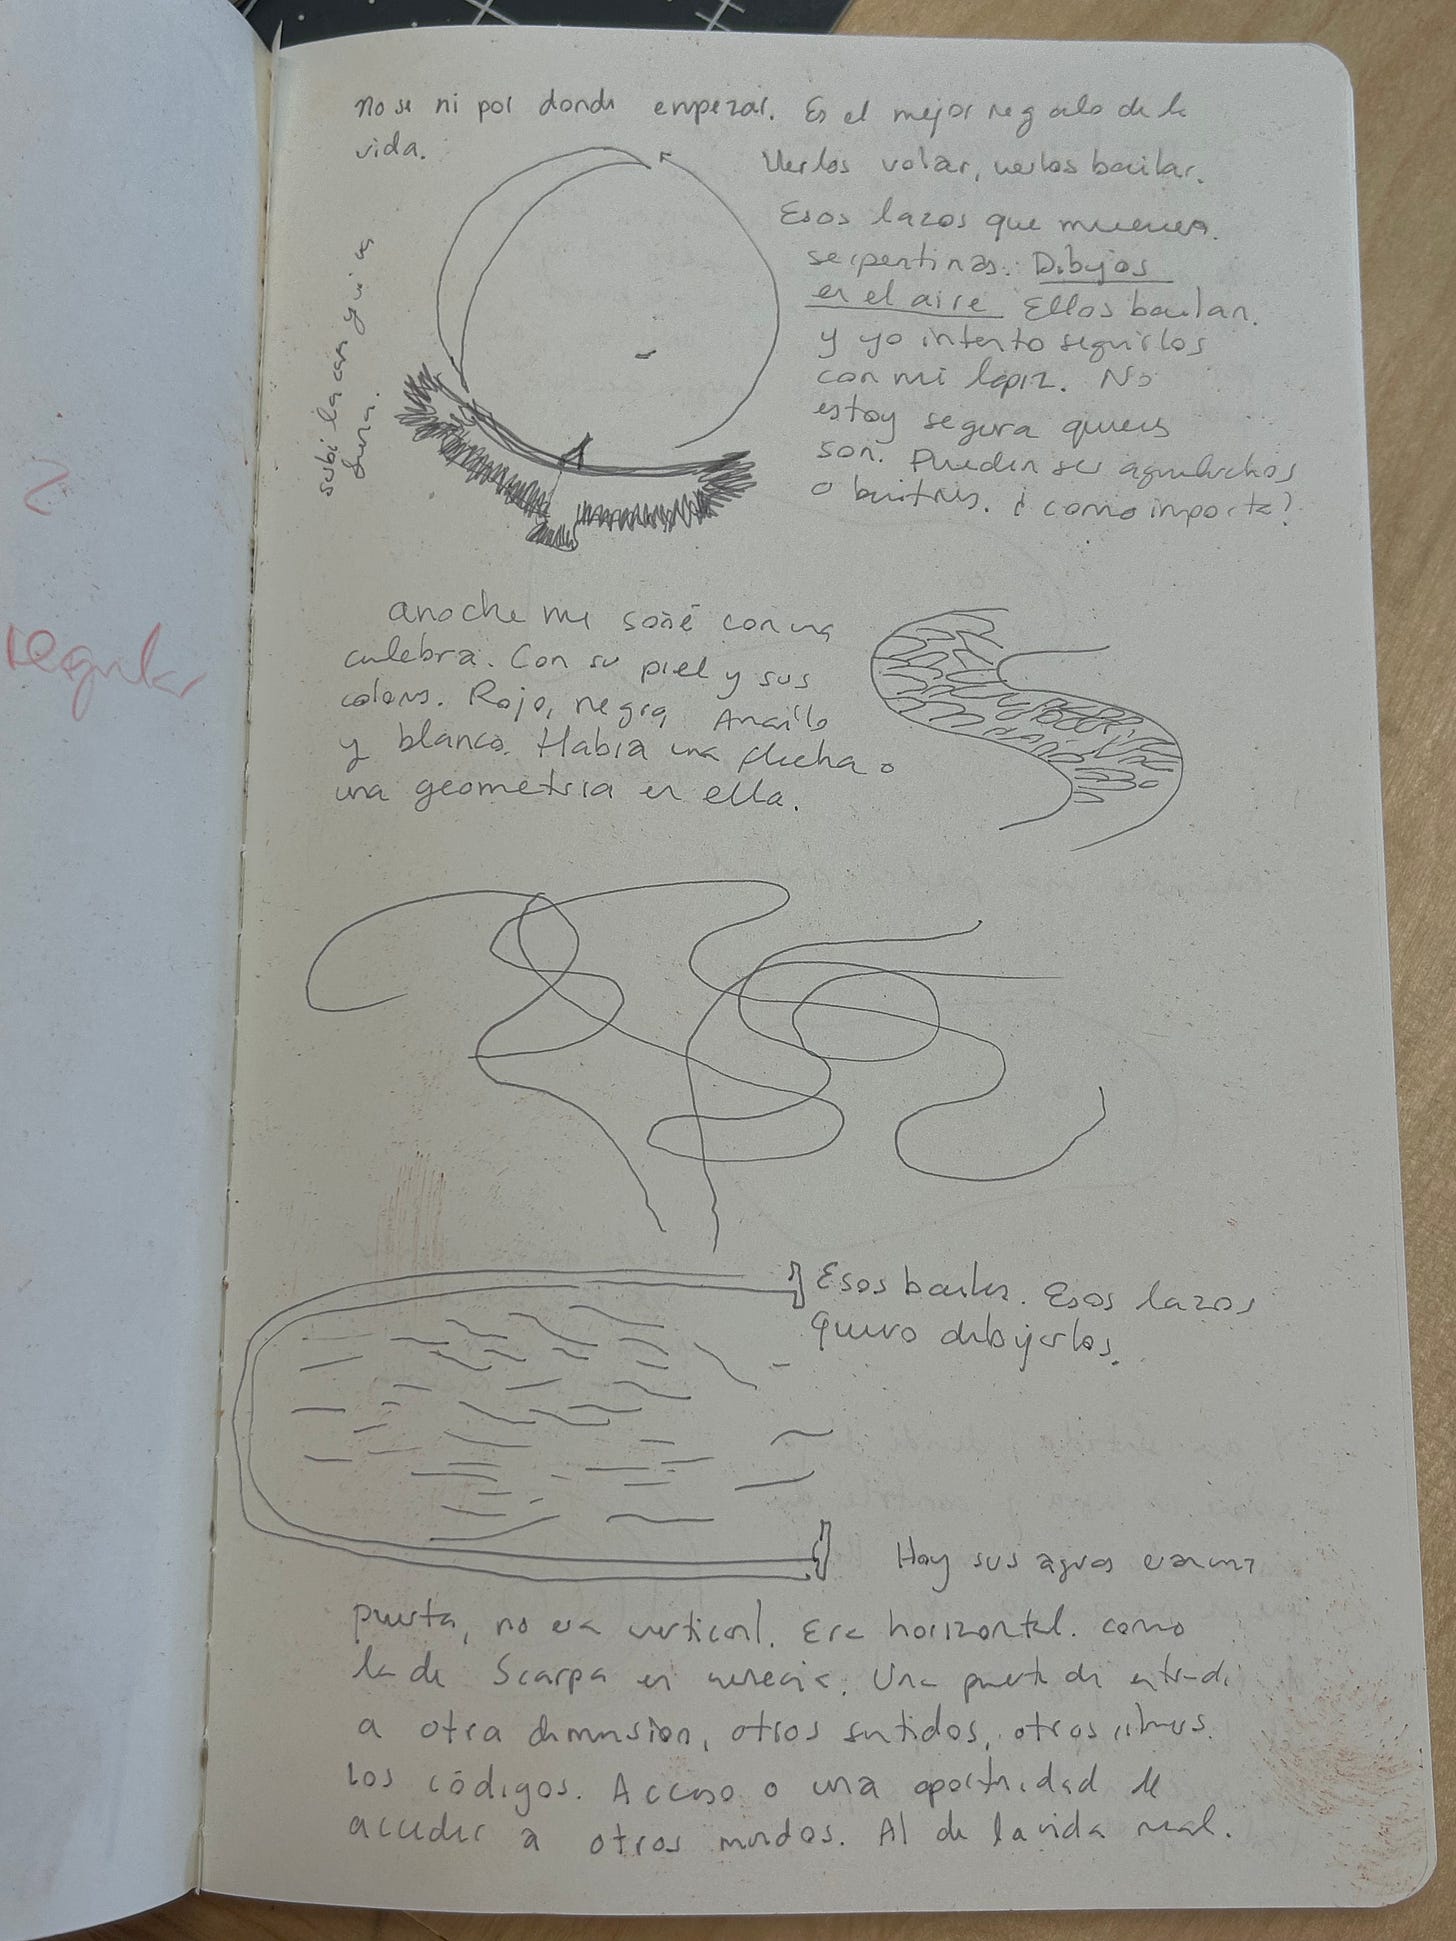 regular
No se ni por donde empezar. Es el mejor regalo de la
vida.
Verlos volar, verlos bailar.
Esos lazos que mueven
serpentinas. Dibujos
en el aire Ellos bailan.
y yo intento seguirlos
con mi lapiz. No
estoy segura quienes
son. Pueden ser aguiluchos
o buitres. ¿como importa?
subi la cara y vi su
anoche me soñé con una
culebra. Con su piel y sus
colores. Rojo, negro, Amarillo
y blanco. Había una flecha o
una geometria en ella.
Esos bailes. Esos lazos
quiero dibujarlos.
Hoy sus aguas eran una
puerta, no era vertical. Era horizontal. como
la de Scarpa en venecia. Una puerta de entrada
a otra dimension, otros sentidos, otros ritmos.
los códigos. Acceso o una oportunidad de
acceder a otros mundos. Al de la vida real.